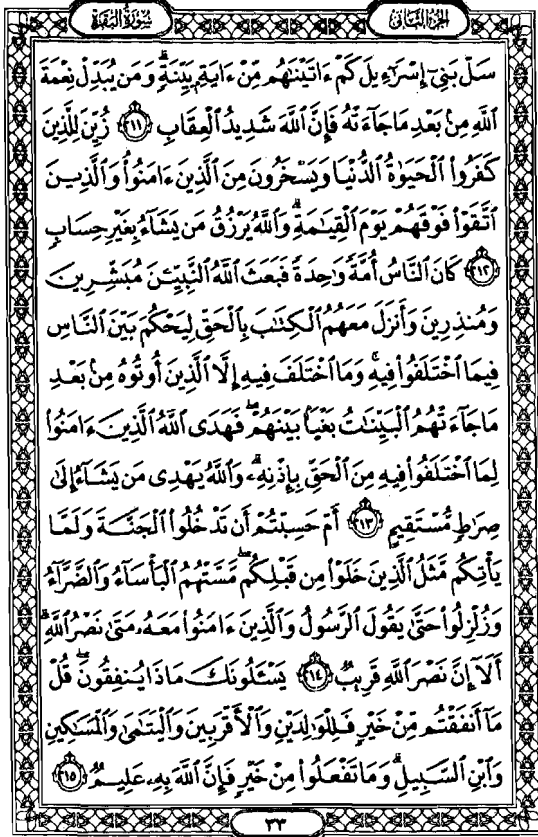 الجزء الثاني
سورة البقرة
سَلْ بَنِىٓ إِسْرَٰٓءِيلَ كَمْ ءَاتَيْنَٰهُم مِّنْ ءَايَةِۭ بَيِّنَةٍۗ وَمَن يُبَدِّلْ نِعْمَةَ
ٱللَّهِ مِنۢ بَعْدِ مَا جَآءَتْهُ فَإِنَّ ٱللَّهَ شَدِيدُ ٱلْعِقَابِ ٢١١ زُيِّنَ لِلَّذِينَ
كَفَرُوا۟ ٱلْحَيَوٰةُ ٱلدُّنْيَا وَيَسْخَرُونَ مِنَ ٱلَّذِينَ ءَامَنُوا۟ۘ وَٱلَّذِينَ
ٱتَّقَوْا۟ فَوْقَهُمْ يَوْمَ ٱلْقِيَٰمَةِۗ وَٱللَّهُ يَرْزُقُ مَن يَشَآءُ بِغَيْرِ حِسَابٍ
٢١٢ كَانَ ٱلنَّاسُ أُمَّةً وَٰحِدَةً فَبَعَثَ ٱللَّهُ ٱلنَّبِيِّـۧنَ مُبَشِّرِينَ
وَمُنذِرِينَ وَأَنزَلَ مَعَهُمُ ٱلْكِتَٰبَ بِٱلْحَقِّ لِيَحْكُمَ بَيْنَ ٱلنَّاسِ
فِيمَا ٱخْتَلَفُوا۟ فِيهِۚ وَمَا ٱخْتَلَفَ فِيهِ إِلَّا ٱلَّذِينَ أُوتُوهُ مِنۢ بَعْدِ
مَا جَآءَتْهُمُ ٱلْبَيِّنَٰتُ بَغْيًۢا بَيْنَهُمْۖ فَهَدَى ٱللَّهُ ٱلَّذِينَ ءَامَنُوا۟
لِمَا ٱخْتَلَفُوا۟ فِيهِ مِنَ ٱلْحَقِّ بِإِذْنِهِۦۗ وَٱللَّهُ يَهْدِى مَن يَشَآءُ إِلَىٰ
صِرَٰطٍ مُّسْتَقِيمٍ ٢١٣ أَمْ حَسِبْتُمْ أَن تَدْخُلُوا۟ ٱلْجَنَّةَ وَلَمَّا
يَأْتِكُم مَّثَلُ ٱلَّذِينَ خَلَوْا۟ مِن قَبْلِكُمۖ مَّسَّتْهُمُ ٱلْبَأْسَآءُ وَٱلضَّرَّآءُ
وَزُلْزِلُوا۟ حَتَّىٰ يَقُولَ ٱلرَّسُولُ وَٱلَّذِينَ ءَامَنُوا۟ مَعَهُۥ مَتَىٰ نَصْرُ ٱللَّهِۗ
أَلَآ إِنَّ نَصْرَ ٱللَّهِ قَرِيبٌ ٢١٤ يَسْـَٔلُونَكَ مَاذَا يُنفِقُونَۖ قُلْ
مَآ أَنفَقْتُم مِّنْ خَيْرٍ فَلِلْوَٰلِدَيْنِ وَٱلْأَقْرَبِينَ وَٱلْيَتَٰمَىٰ وَٱلْمَسَٰكِينِ
وَٱبْنِ ٱلسَّبِيلِۗ وَمَا تَفْعَلُوا۟ مِنْ خَيْرٍ فَإِنَّ ٱللَّهَ بِهِۦ عَلِيمٌ ٢١٥
٣٣